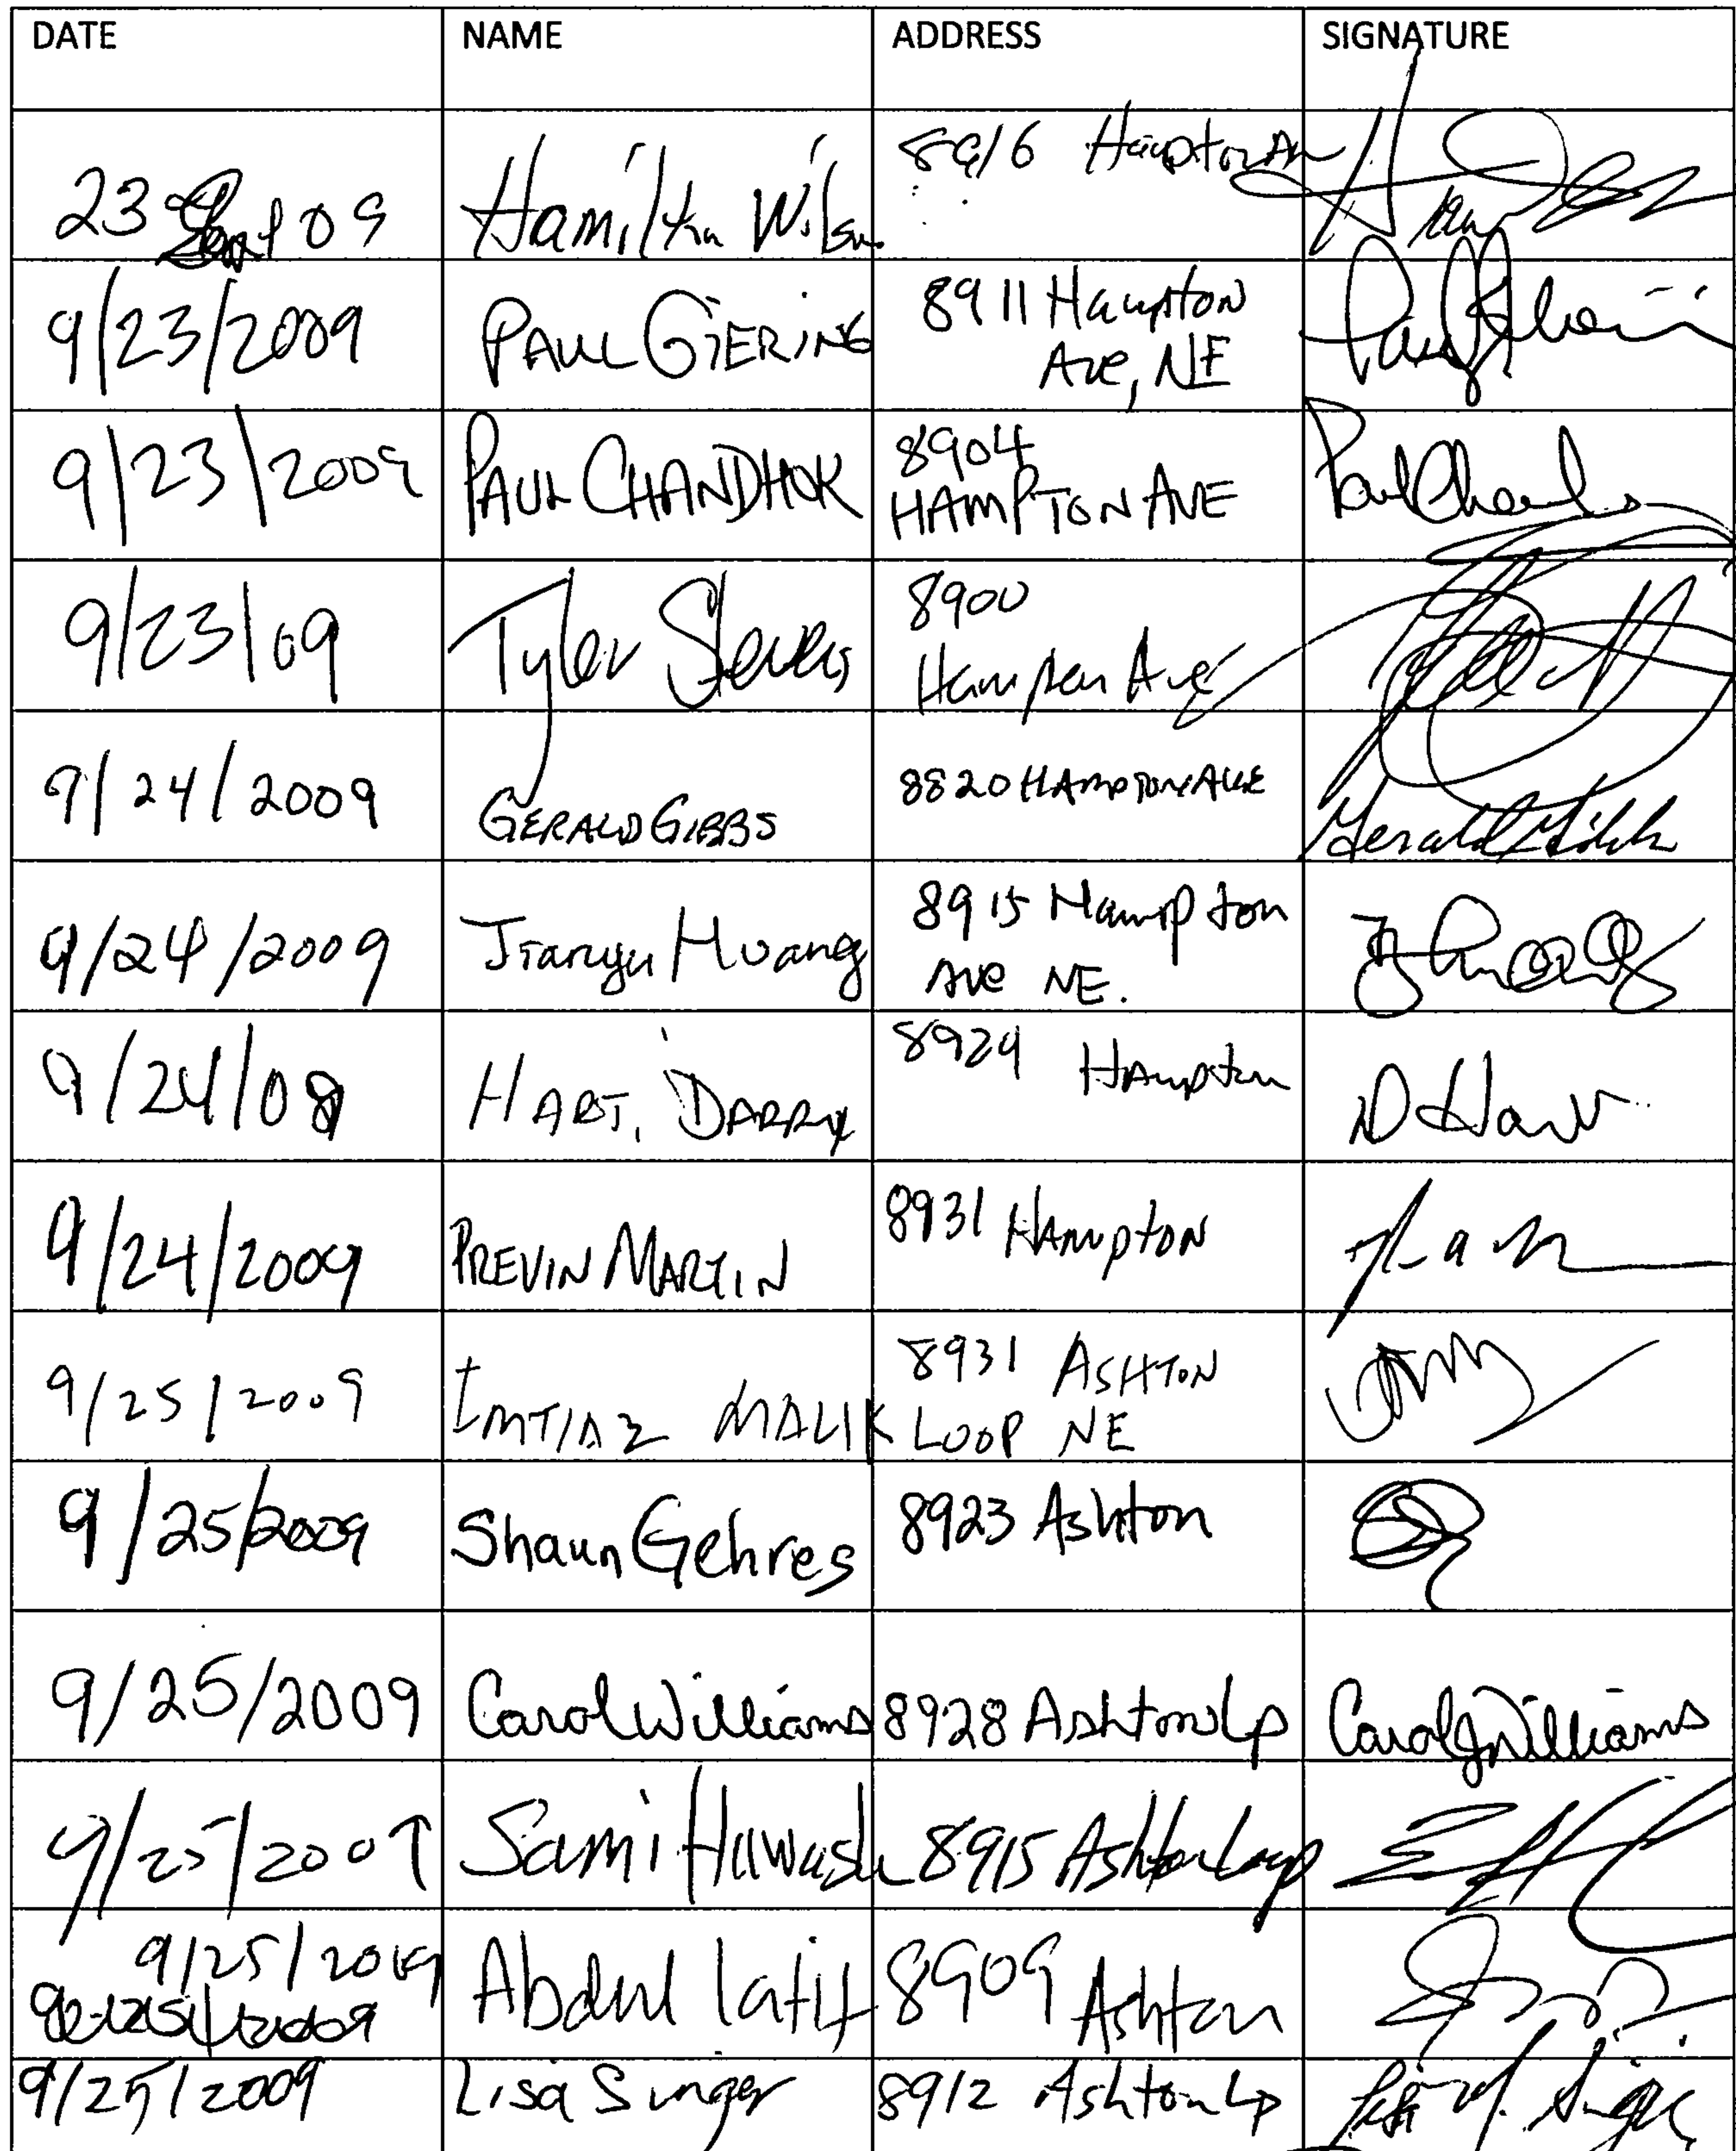 DATE NAME ADDRESS SIGNATURE
23 Sept 09 Hamilton Wilson 8916 Hampton Av
9/23/2009 PAUL GIERING 8911 Hampton
Ave, NE
9/23/2009 PAUL CHANDHOK 8904
HAMPTON AVE
9/23/09 Tyler Stevens 8900
Hampton Ave
9/24/2009 GERALD GIBBS 8820 HAMPTON AVE Gerald Gibbs
9/24/2009 Jianyu Huang 8915 Hampton
Ave NE.
9/24/09 HART, DARRY 8924 Hampton D Hart
9/24/2009 PREVIN MARTIN 8931 HAMPTON
9/25/2009 IMTIAZ MALIK 8931 ASHTON
LOOP NE
9/25/2009 Shaun Gehres 8923 Ashton
9/25/2009 Carol Williams 8928 Ashton Lp Carol J Williams
9/25/2009 Sami Hawash 8915 Ashton Loop
9/25/2009 Abdul latif 8909 Ashton
9/25/2009 Lisa Singer 8912 Ashton Lp Lisa M. Singer